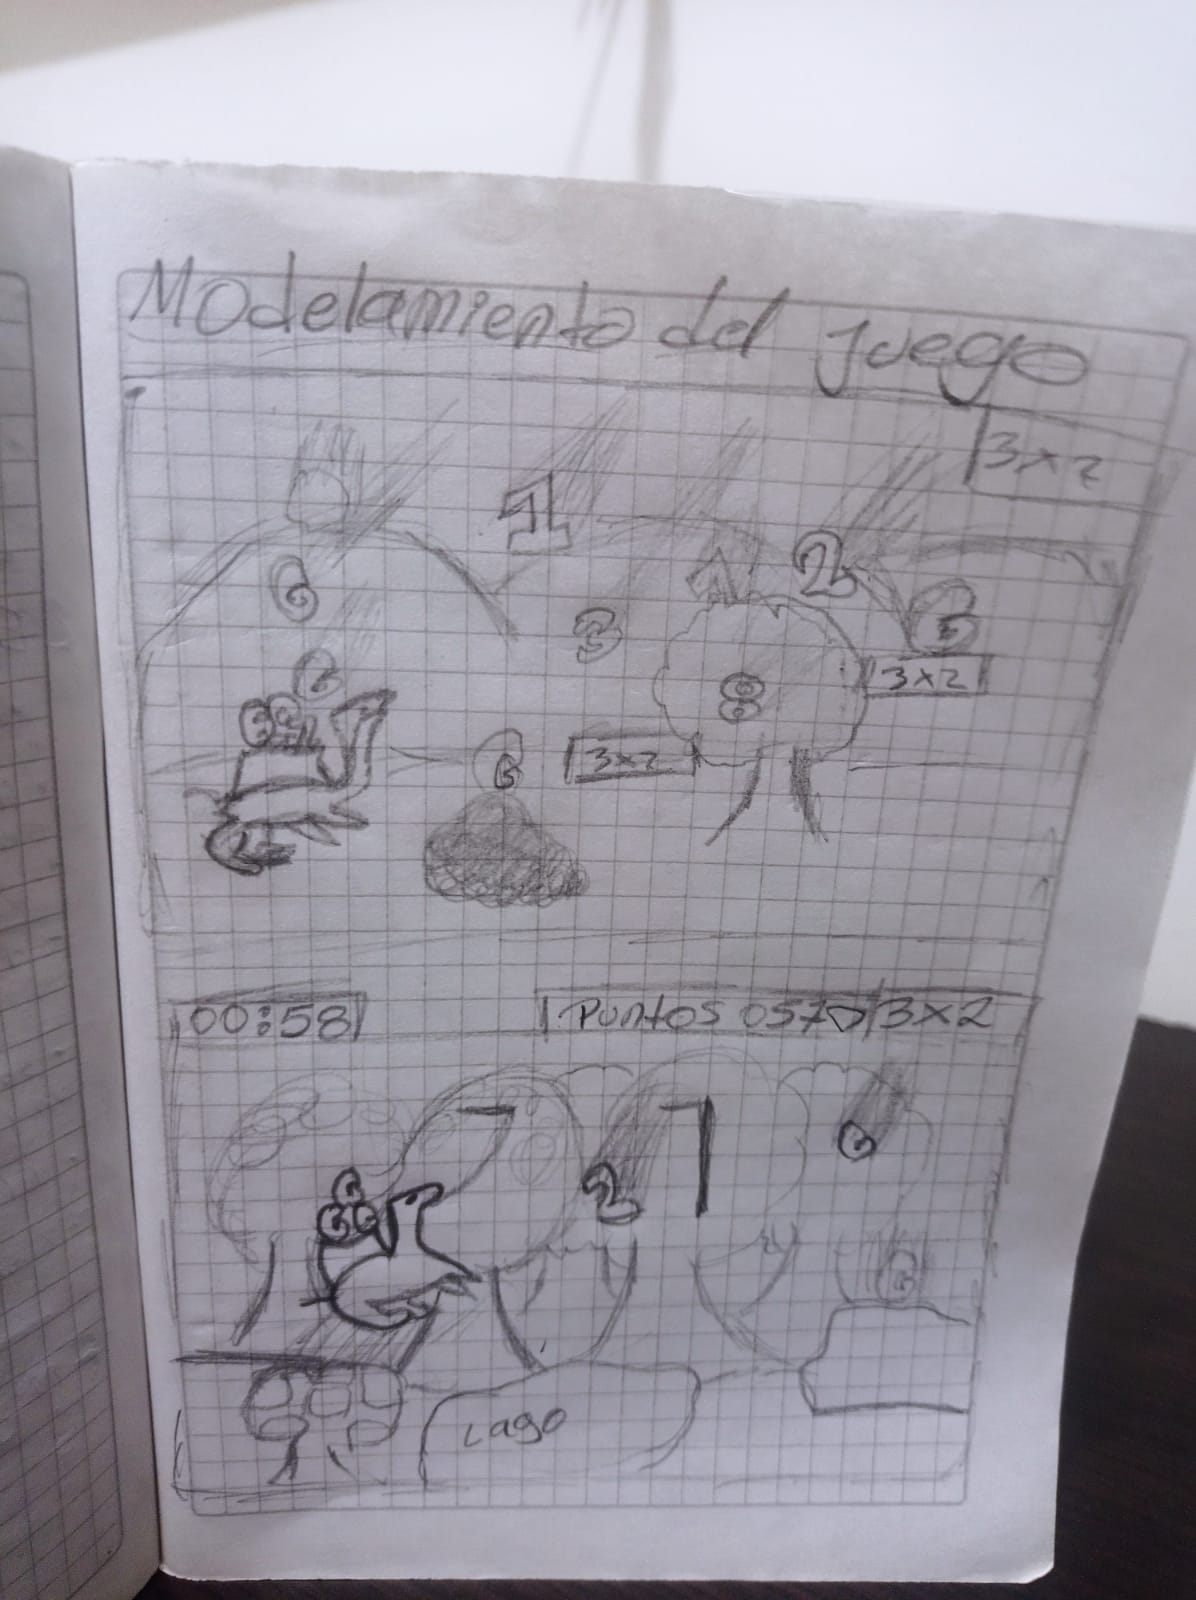 Modelamiento del juego
3x2
1
6
2
1
3
6
6
8
3x2
3x2
6
00:58
Puntos 0570
3x2
7
7
6
2
6
Lago